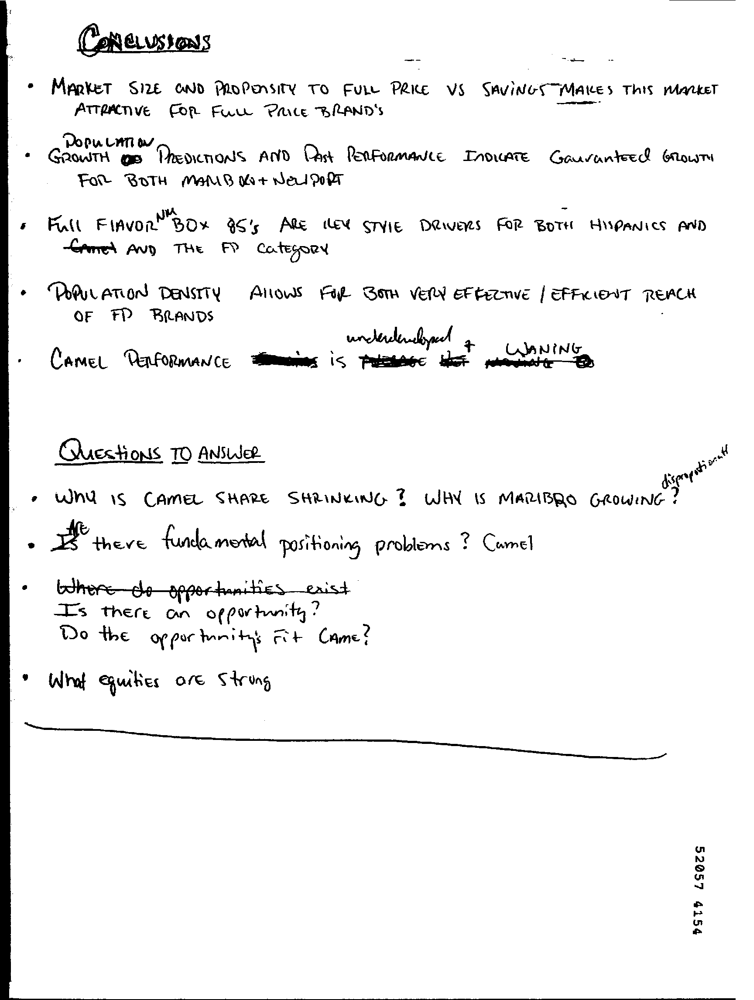 CONCLUSIONS
• MARKET SIZE AND PROPENSITY TO FULL PRICE VS SAVINGS MAKES THIS MARKET
ATTRACTIVE FOR FULL PRICE BRAND'S
POPULATION
• GROWTH PREDICTIONS AND PAST PERFORMANCE INDICATE Gauranteed GROWTH
FOR BOTH MARLBORO + NEWPORT
NM
• Full FlAVOR BOX 85's ARE KEY STYlE DRIVERS FOR BOTH HISPANICS AND
Camel AND THE FP CATEGORY
• POPULATION DENSITY AllOWS FOR BOTH VERY EFFECTIVE / EFFICIENT REACH
OF FP BRANDS
underdeveloped + WANING
• CAMEL PERFORMANCE is
QUESTIONS TO ANSWER
disproportionatly
• WHY IS CAMEL SHARE SHRINKING? WHY IS MARLBRO GROWING?
ARE
• Is there fundamental positioning problems? Camel
• Where do opportunities exist
Is there an opportunity?
Do the opportunity's Fit CAMEl?
• What equities are Strong
52057 4154